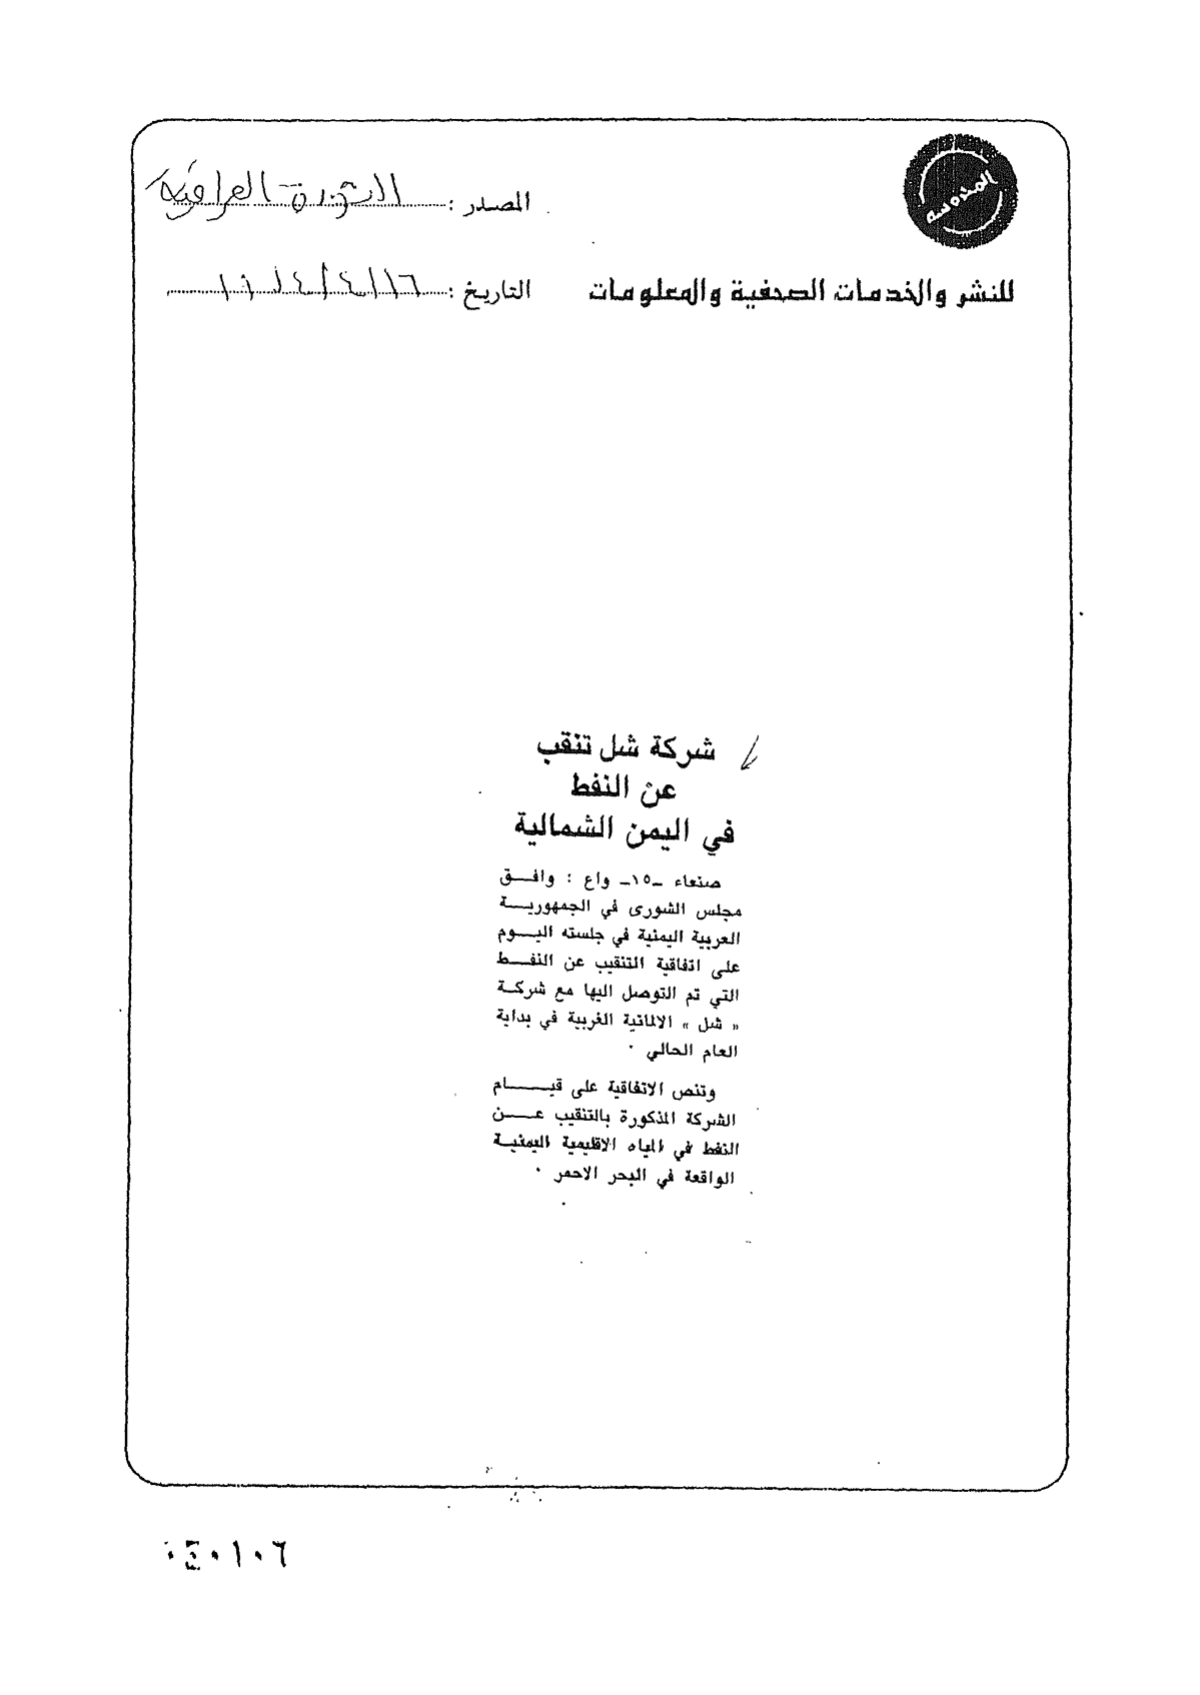 المصدر : الثورة العراقية
للنشر والخدمات الصحفية والمعلومات
التاريخ :
شركة شل تنقب
عن النفط
في اليمن الشمالية
صنعاء ـ١٥ـ واع : وافـــق
مجلس الشورى في الجمهوريـــة
العربية اليمنية في جلسته اليـــوم
على اتفاقية التنقيب عن النفـــط
التي تم التوصل اليها مع شركــة
« شل » الالمانية الغربية في بداية
العام الحالي ٠
وتنص الاتفاقية على قيـــــام
الشركة المذكورة بالتنقيب عـــن
النفط في المياه الاقليمية اليمنيــة
الواقعة في البحر الاحمر ٠